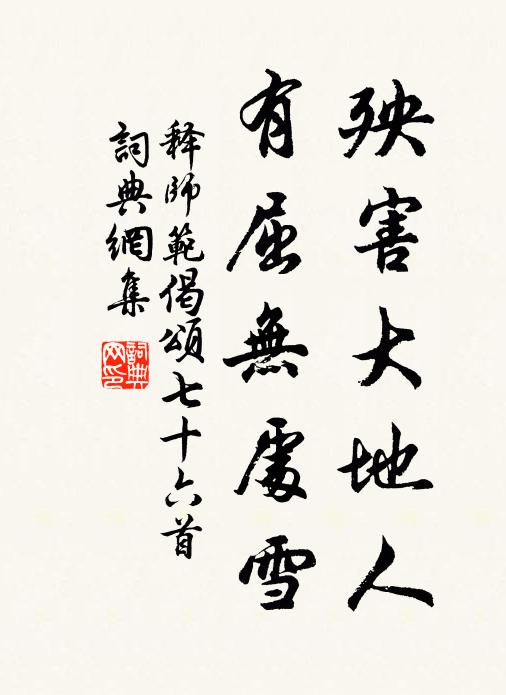 殃害大地人
有屈無處雪
释師範偈頌七十六首
詞典網集
詞典
网印